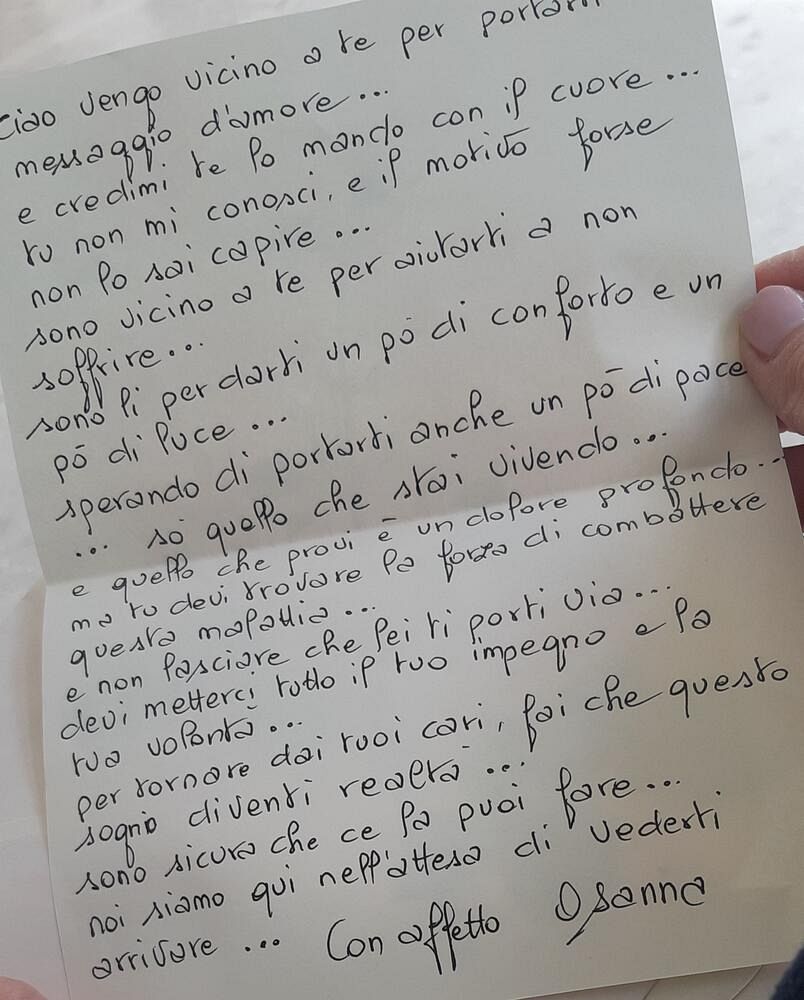 Ciao vengo vicino a te per portarti
messaggio d'amore...
e credimi te lo mando con il cuore...
tu non mi conosci, e il motivo forse
non lo sai capire...
sono vicino a te per aiutarti a non
soffrire...
sono lì per darti un pō di conforto e un
pō di luce...
sperando di portarti anche un pō di pace
... sò quello che stai vivendo...
e quello che provi ē un dolore profondo...
ma tu devi trovare la forza di combattere
questa malattia...
e non lasciare che lei ti porti via...
devi metterci tutto il tuo impegno e la
tua volontà...
per tornare dai tuoi cari, fai che questo
sogno diventi realtà...
sono sicura che ce la puoi fare...
noi siamo qui nell'attesa di vederti
arrivare... Con affetto Osanna